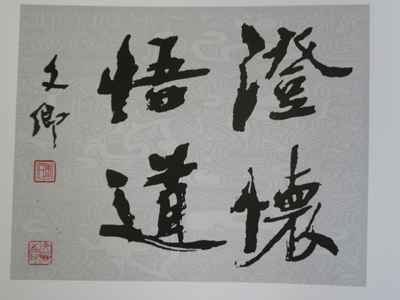 澄懷
悟道
文卿